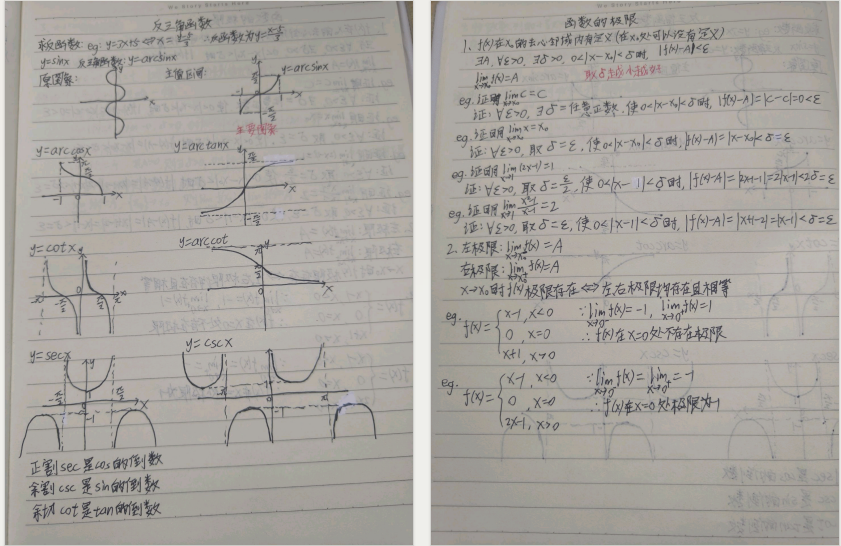 反三角函数
求反函数: eg: y=3x+5 <=> x=(y-5)/3 ∴反函数为y=(x-5)/3
y=sinx 反三角函数: y=arcsinx
原函数: 主值区间: y=arcsinx
y=arccosx y=arctanx
y=cotx y=arccot
y=secx y=cscx
正割sec是cos的倒数
余割csc是sin的倒数
余切cot是tan的倒数
函数的极限
1. f(x)在x₀的去心邻域内有定义(在x₀处可以没有定义)
∃A, ∀ε>0, ∃δ>0, 0<|x-x₀|<δ时, |f(x)-A|<ε
lim x→x₀ f(x)=A
eg. 证明 lim x→x₀ C=C
证: ∀ε>0, ∃δ=任意正数, 使0<|x-x₀|<δ时, |f(x)-A|=|C-C|=0<ε
eg. 证明 lim x→x₀ x=x₀
证: ∀ε>0, 取δ=ε, 使0<|x-x₀|<δ时, |f(x)-A|=|x-x₀|<δ=ε
eg. 证明 lim x→1 (2x-1)=1
证: ∀ε>0, 取δ=ε/2, 使0<|x-1|<δ时, |f(x)-A|=|2x-1-1|=2|x-1|<2δ=ε
eg. 证明 lim x→1 (x²-1)/(x-1)=2
证: ∀ε>0, 取δ=ε, 使0<|x-1|<δ时, |f(x)-A|=|x+1-2|=|x-1|<δ=ε
2. 左极限: lim x→x₀⁻ f(x)=A
右极限: lim x→x₀⁺ f(x)=A
x→x₀时f(x)极限存在 <=> 左,右极限均存在且相等
eg. f(x)= { x-1, x<0 ∵ lim x→0⁻ f(x)=-1, lim x→0⁺ f(x)=1
0, x=0 ∴ f(x)在x=0处不存在极限
x+1, x>0
eg. f(x)= { x-1, x<0 ∵ lim x→0⁻ f(x)= lim x→0⁺ =-1
0, x=0 ∴ f(x)在x=0处极限为-1
2x-1, x>0